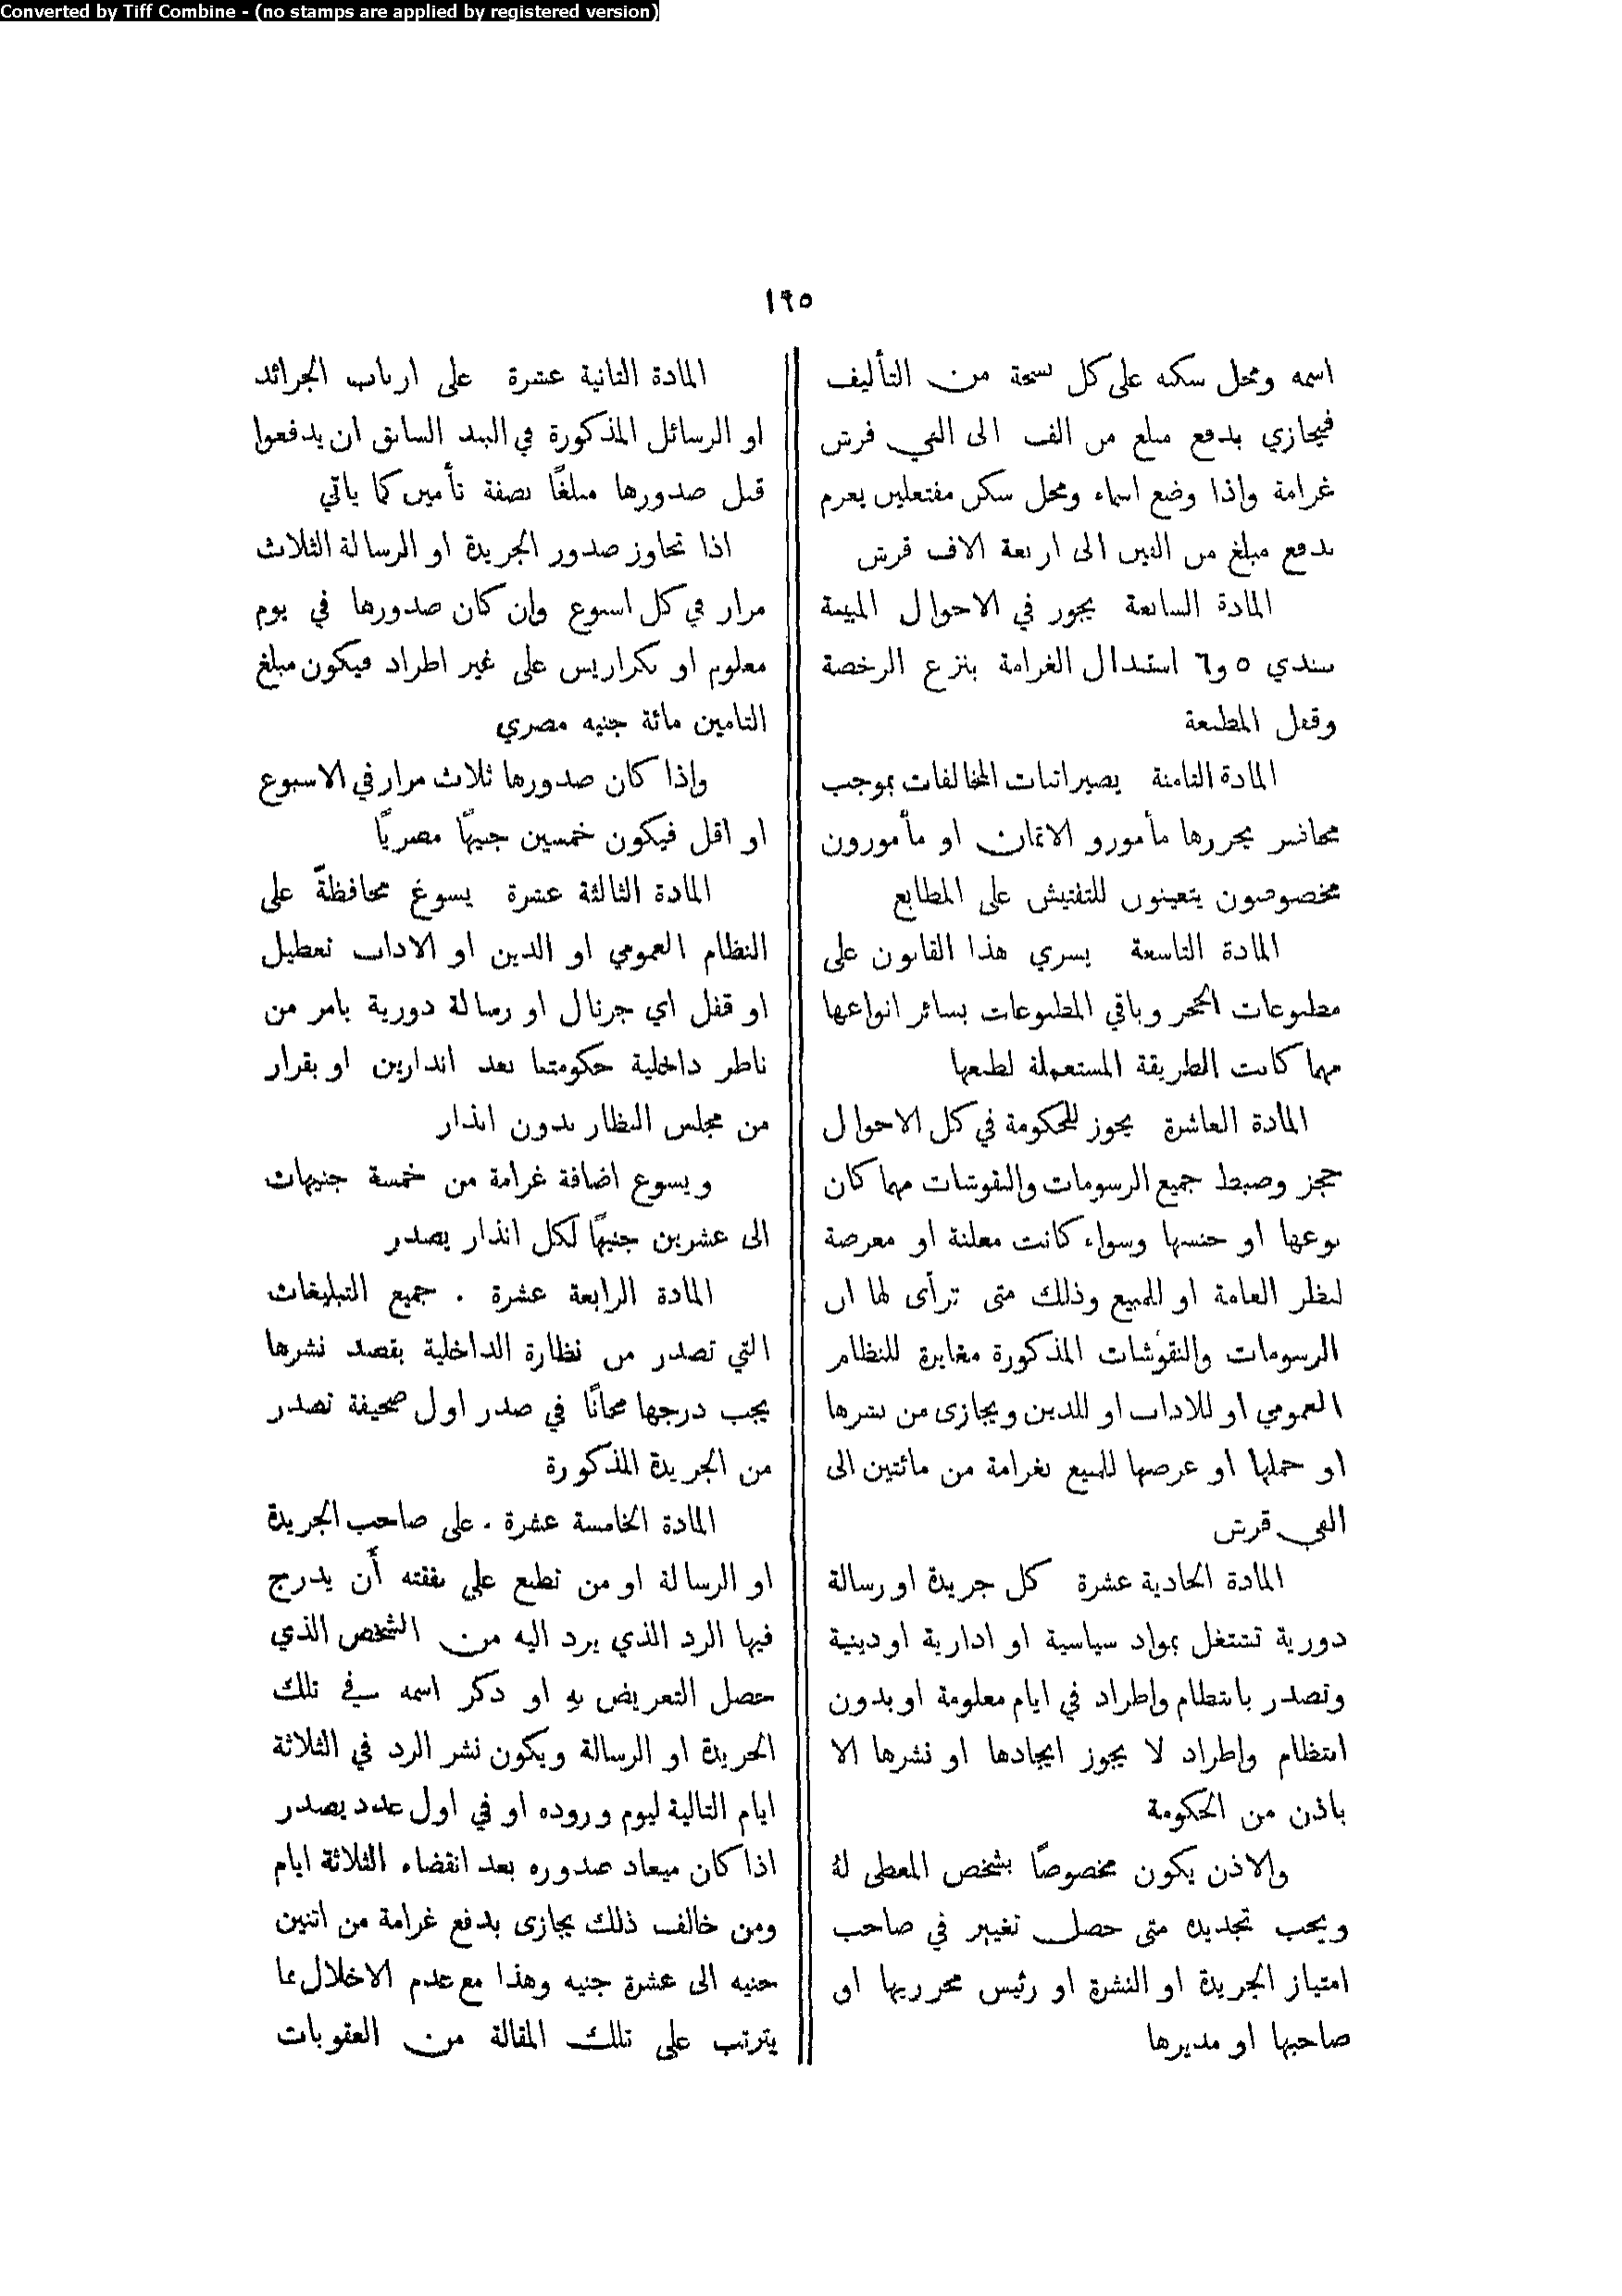 Converted by Tiff Combine - (no stamps are applied by registered version)
١٩٥
اسمه ومحل سكنه على كل نسخة من التأليف
فيجازي بدفع مبلغ من الف الى الفي قرش
غرامة واذا وضع اسماء ومحل سكن مفتعلين يغرم
بدفع مبلغ من الفين الى اربعة الاف قرش
المادة السابعة يجوز في الاحوال المبينة
ببندي ٥ و٦ استبدال الغرامة بنزع الرخصة
وقفل المطبعة
المادة الثامنة يصير اثبات المخالفات بموجب
محاضر يحررها مأمورو الاثمان او مأمورون
مخصوصون يتعينون للتفتيش على المطابع
المادة التاسعة يسري هذا القانون على
مطبوعات الحجر وباقي المطبوعات بسائر انواعها
مهما كانت الطريقة المستعملة لطبعها
المادة العاشرة يجوز للحكومة في كل الاحوال
حجز وضبط جميع الرسومات والنقوشات مهما كان
نوعها او جنسها وسواء كانت معلنة او معرضة
لنظر العامة او للمبيع وذلك متى ترأى لها ان
الرسومات والنقوشات المذكورة مغايرة للنظام
العمومي او للاداب او للدين ويجازى من نشرها
او حملها او عرضها للمبيع بغرامة من مائتين الى
الفي قرش
المادة الحادية عشرة كل جريدة او رسالة
دورية تشتغل بمواد سياسية او ادارية او دينية
وتصدر بانتظام واطراد في ايام معلومة او بدون
انتظام واطراد لا يجوز ايجادها او نشرها الا
باذن من الحكومة
والاذن يكون مخصوصًا بشخص المعطى له
ويجب تجديده متى حصل تغيير في صاحب
امتياز الجريدة او النشرة او رئيس محرريها او
صاحبها او مديرها
المادة الثانية عشرة على ارباب الجرائد
او الرسائل المذكورة في البند السابق ان يدفعوا
قبل صدورها مبلغًا بصفة تأمين كما ياتي
اذا تجاوز صدور الجريدة او الرسالة الثلاث
مرار في كل اسبوع وان كان صدورها في يوم
معلوم او بكراريس على غير اطراد فيكون مبلغ
التامين مائة جنيه مصري
واذا كان صدورها ثلاث مرار في الاسبوع
او اقل فيكون خمسين جنيهًا مصريًا
المادة الثالثة عشرة يسوغ محافظةً على
النظام العمومي او الدين او الاداب تعطيل
او قفل اي جرنال او رسالة دورية بامر من
ناظر داخلية حكومتنا بعد انذارين او بقرار
من مجلس النظار بدون انذار
ويسوغ اضافة غرامة من خمسة جنيهات
الى عشرين جنيهًا لكل انذار يصدر
المادة الرابعة عشرة . جميع التبليغات
التي تصدر من نظارة الداخلية بقصد نشرها
يجب درجها مجانًا في صدر اول صحيفة تصدر
من الجريدة المذكورة
المادة الخامسة عشرة . على صاحب الجريدة
او الرسالة او من تطبع على نفقته أن يدرج
فيها الرد الذي يرد اليه من الشخص الذي
حصل التعريض به او ذكر اسمه في تلك
الجريدة او الرسالة ويكون نشر الرد في الثلاثة
ايام التالية ليوم وروده او في اول عدد يصدر
اذا كان ميعاد صدوره بعد انقضاء الثلاثة ايام
ومن خالف ذلك يجازى بدفع غرامة من اثنين
جنيه الى عشرة جنيه وهذا مع عدم الاخلال بما
يترتب على تلك المقالة من العقوبات